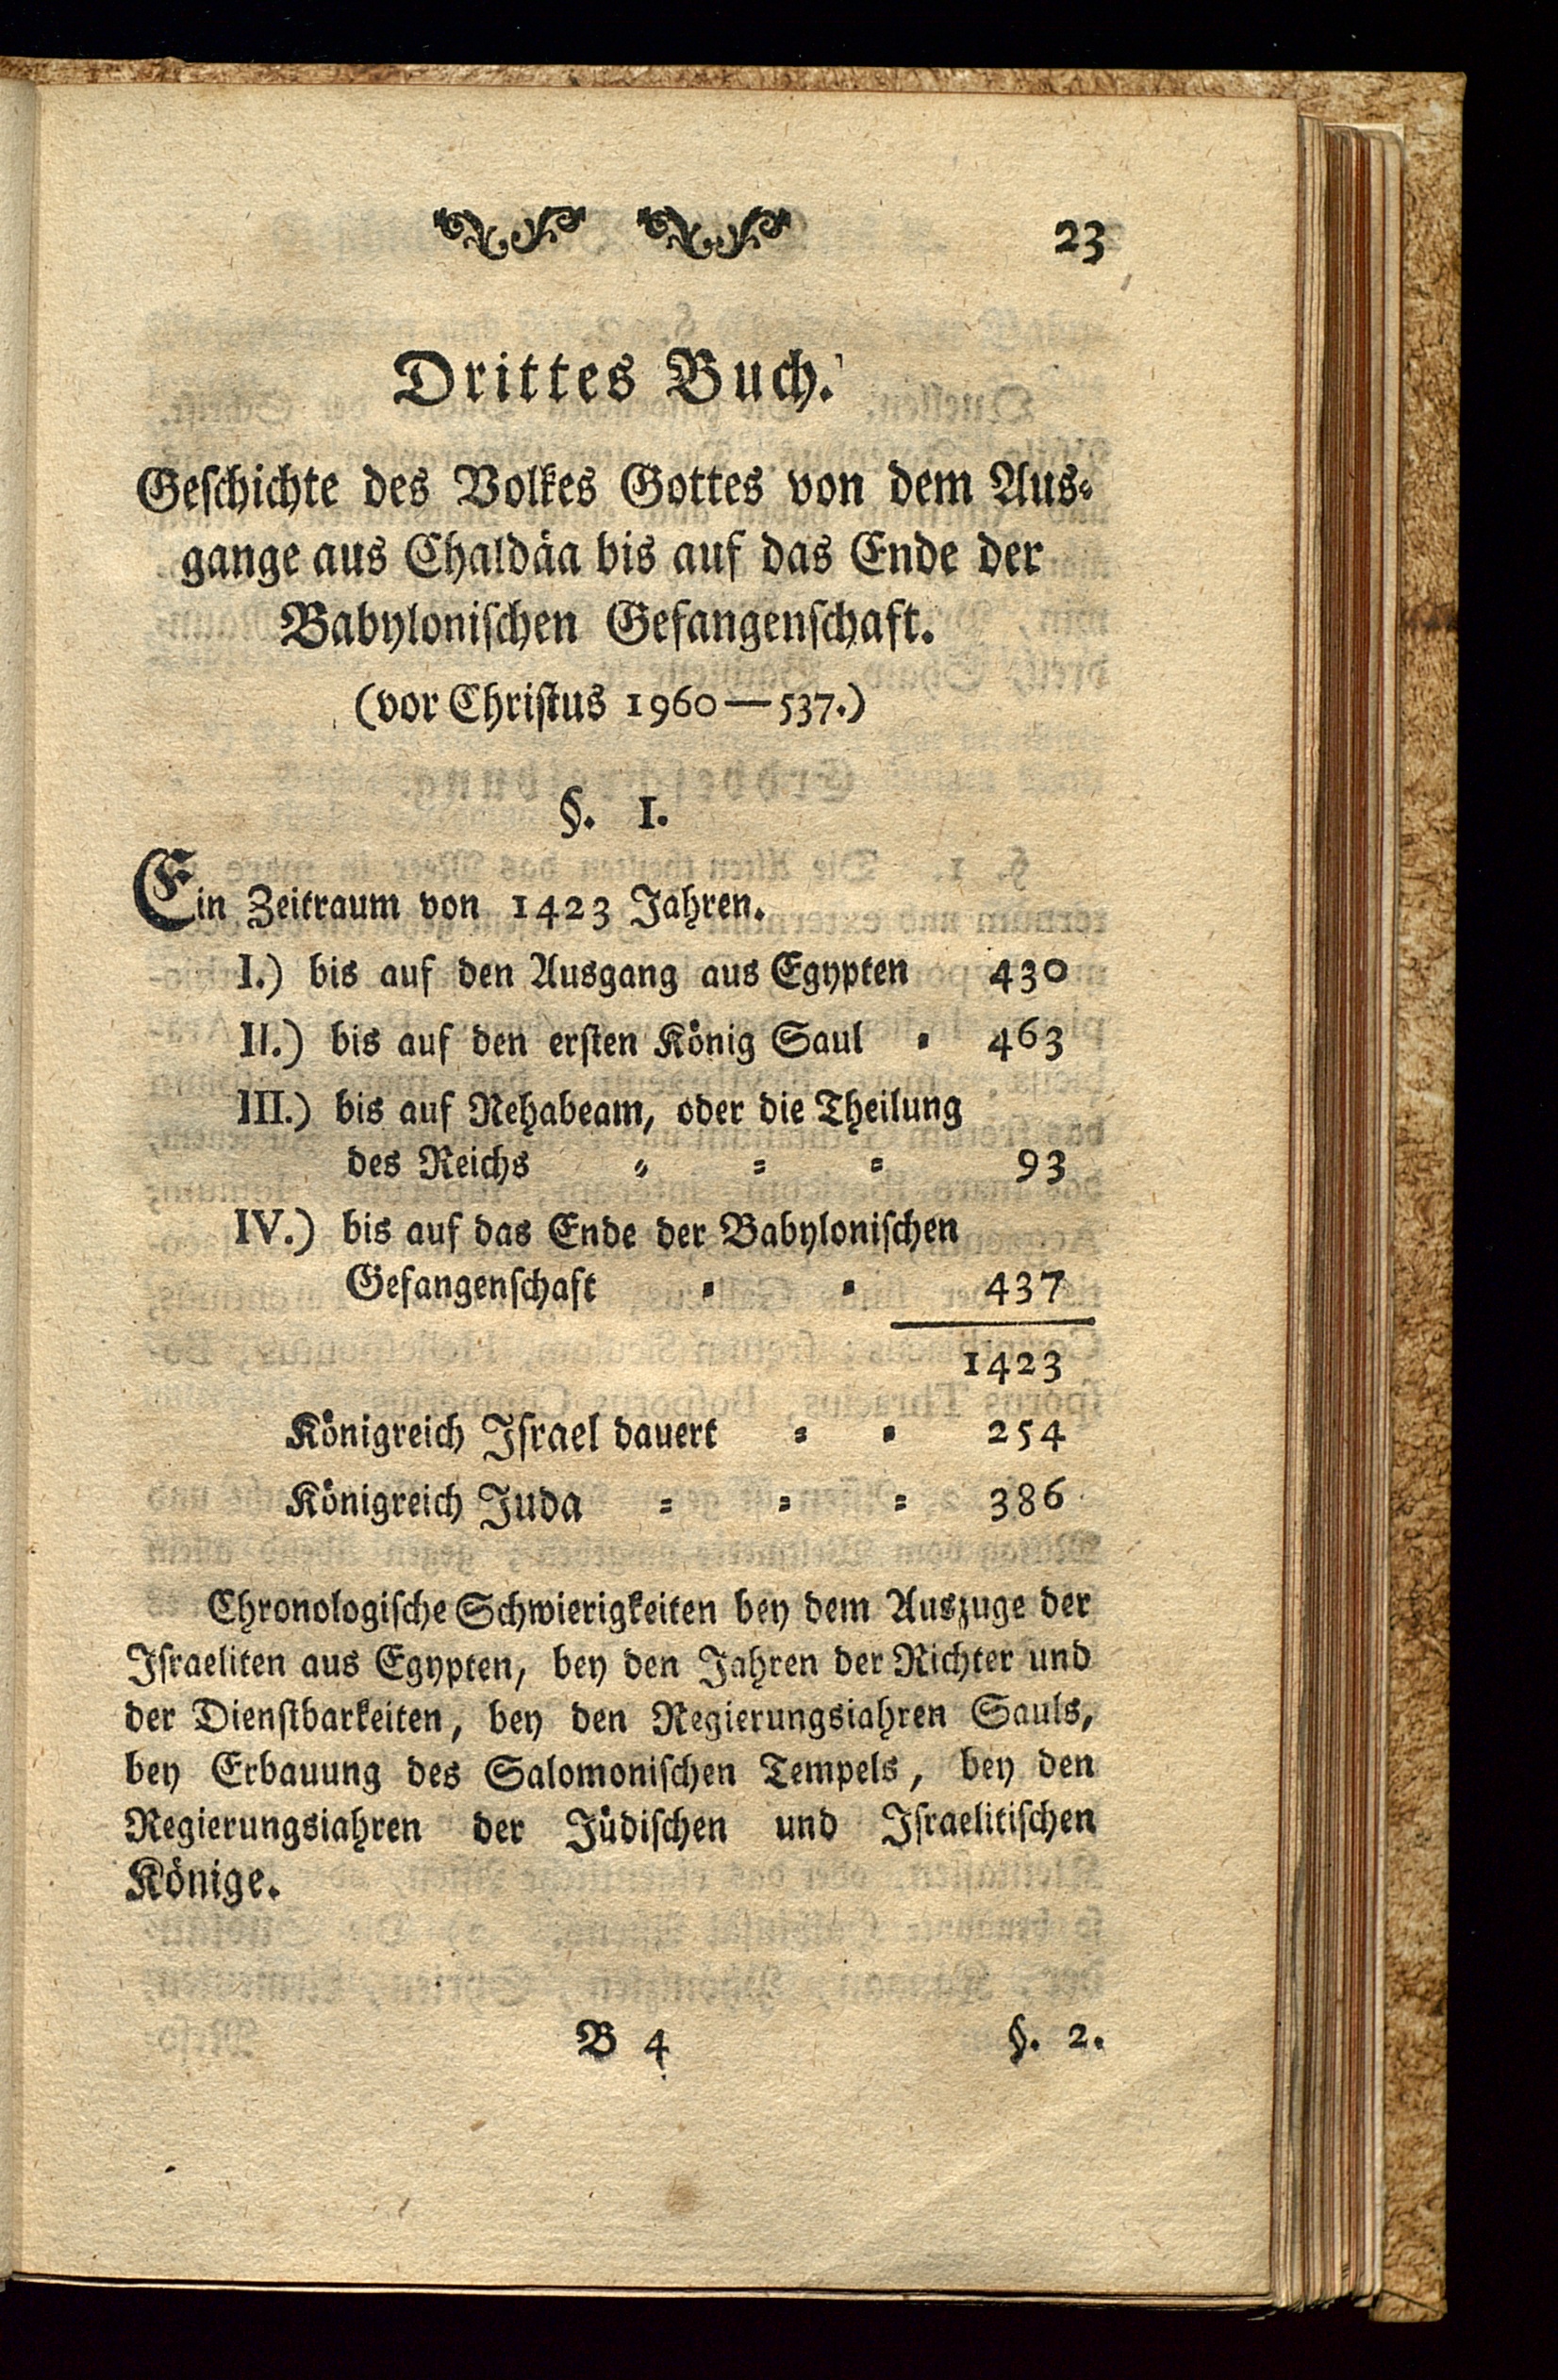 23
Drittes Buch.
Geſchichte des Volkes Gottes von dem Aus⸗
gange aus Chaldäa bis auf das Ende der
Babyloniſchen Gefangenſchaft.
(vor Chriſtus 1960—537.)
§. 1.
Ein Zeitraum von 1423 Jahren.
I.) bis auf den Ausgang aus Egypten 430
II.) bis auf den erſten König Saul ⸗ 463
III.) bis auf Rehabeam, oder die Theilung
des Reichs ⸗ ⸗ ⸗ 93
IV.) bis auf das Ende der Babyloniſchen
Gefangenſchaft ⸗ ⸗ 437
1423
Königreich Iſrael dauert ⸗ ⸗ 254
Königreich Juda ⸗ ⸗ ⸗ 386
Chronologiſche Schwierigkeiten bey dem Auszuge der
Iſraeliten aus Egypten, bey den Jahren der Richter und
der Dienſtbarkeiten, bey den Regierungsiahren Sauls,
bey Erbauung des Salomoniſchen Tempels, bey den
Regierungsiahren der Jüdiſchen und Iſraelitiſchen
Könige.
B 4 §. 2.